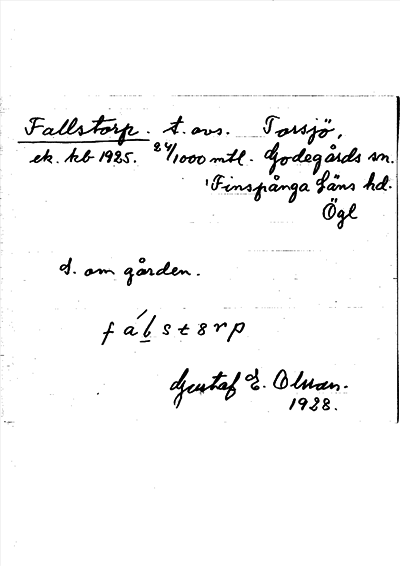 Fallstorp. t. avs. Torsjö,
ek. kb 1925. 24/1000 mtl. Godegårds sn.
Finspånga läns hd.
Ögl
d. om gården.
fálstərp
Gustaf E. Olsson.
1928.